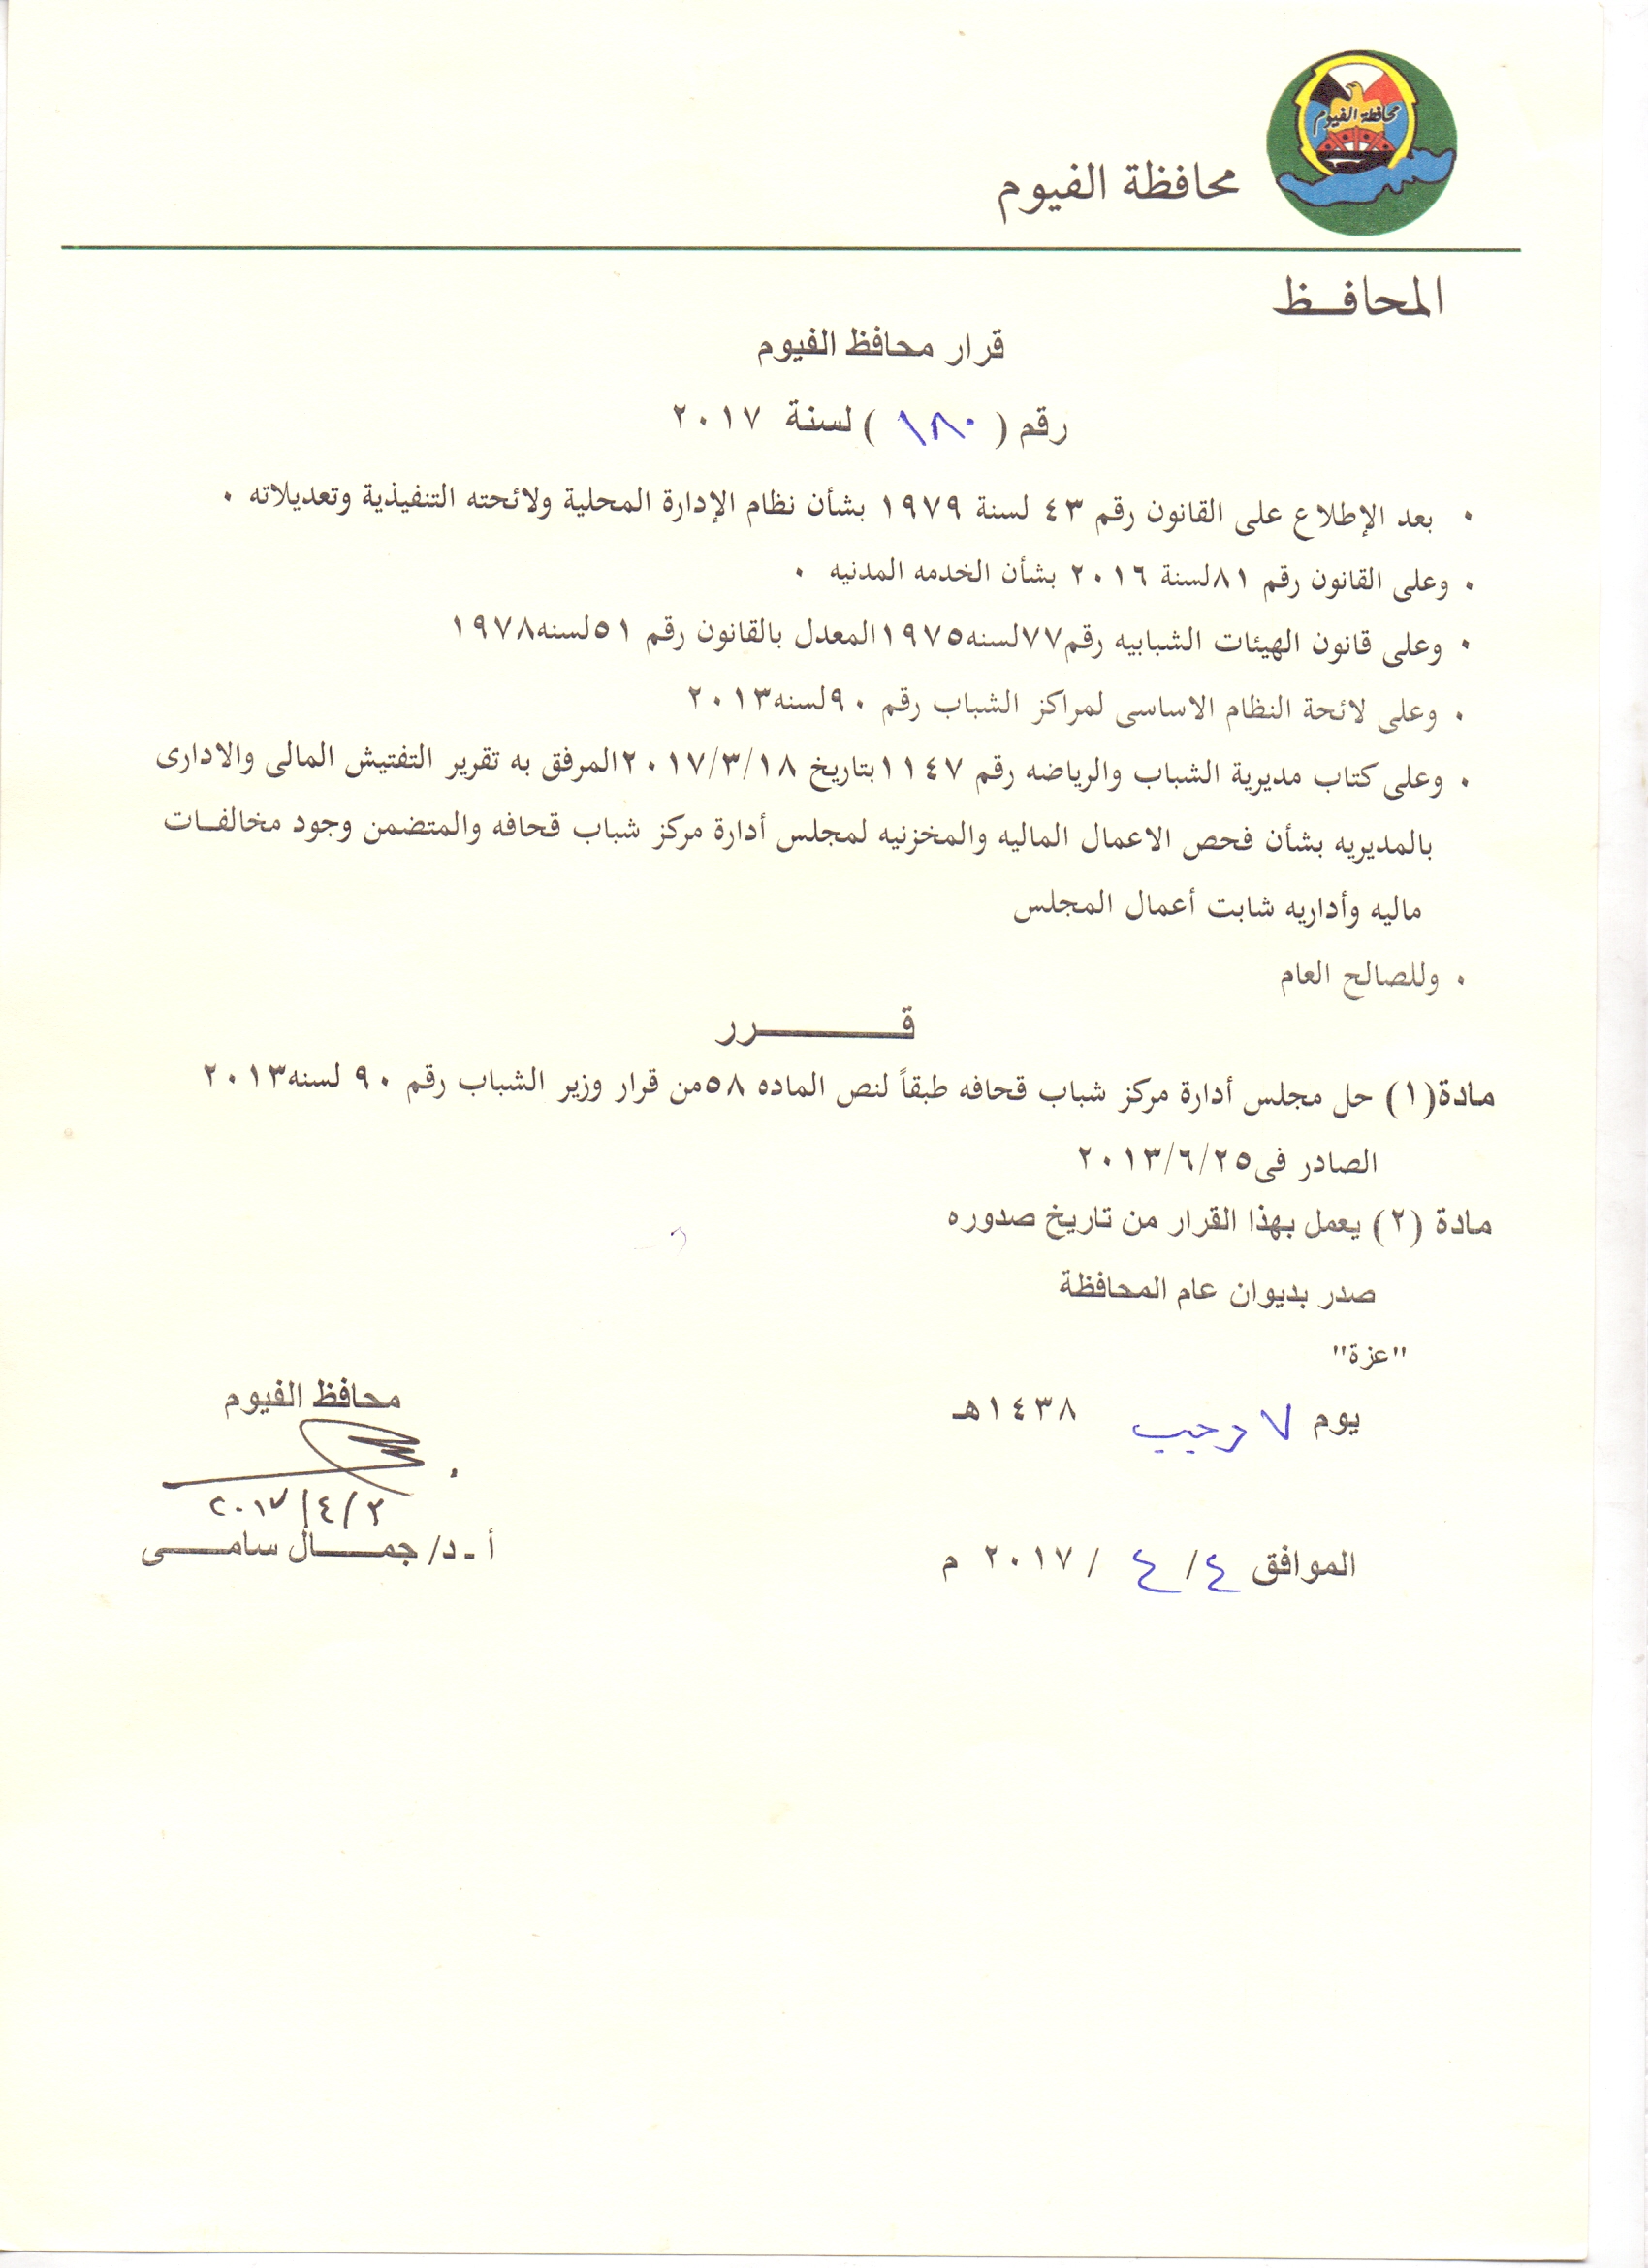 محافظة الفيوم
محافظة الفيوم
المحافــظ
قرار محافظ الفيوم
رقم ( ١٨٠ ) لسنة ٢٠١٧
• بعد الإطلاع على القانون رقم ٤٣ لسنة ١٩٧٩ بشأن نظام الإدارة المحلية ولائحته التنفيذية وتعديلاته •
• وعلى القانون رقم ٨١لسنة ٢٠١٦ بشأن الخدمه المدنيه •
• وعلى قانون الهيئات الشبابيه رقم٧٧لسنه١٩٧٥المعدل بالقانون رقم ٥١لسنه١٩٧٨
• وعلى لائحة النظام الاساسى لمراكز الشباب رقم ٩٠لسنه٢٠١٣
• وعلى كتاب مديرية الشباب والرياضه رقم ١١٤٧بتاريخ ٢٠١٧/٣/١٨المرفق به تقرير التفتيش المالى والادارى
بالمديريه بشأن فحص الاعمال الماليه والمخزنيه لمجلس أدارة مركز شباب قحافه والمتضمن وجود مخالفــات
ماليه وأداريه شابت أعمال المجلس
• وللصالح العام
قــــــــرر
مادة(١) حل مجلس أدارة مركز شباب قحافه طبقاً لنص الماده ٥٨من قرار وزير الشباب رقم ٩٠ لسنه٢٠١٣
الصادر فى٢٠١٣/٦/٢٥
مادة (٢) يعمل بهذا القرار من تاريخ صدوره
صدر بديوان عام المحافظة
"عزة"
محافظ الفيوم
يوم ٧ رجب ١٤٣٨هـ
٢٠١٧/٤/٢
أ ـ د/ جمـــال سامـــى
الموافق ٤/ ٤ / ٢٠١٧ م